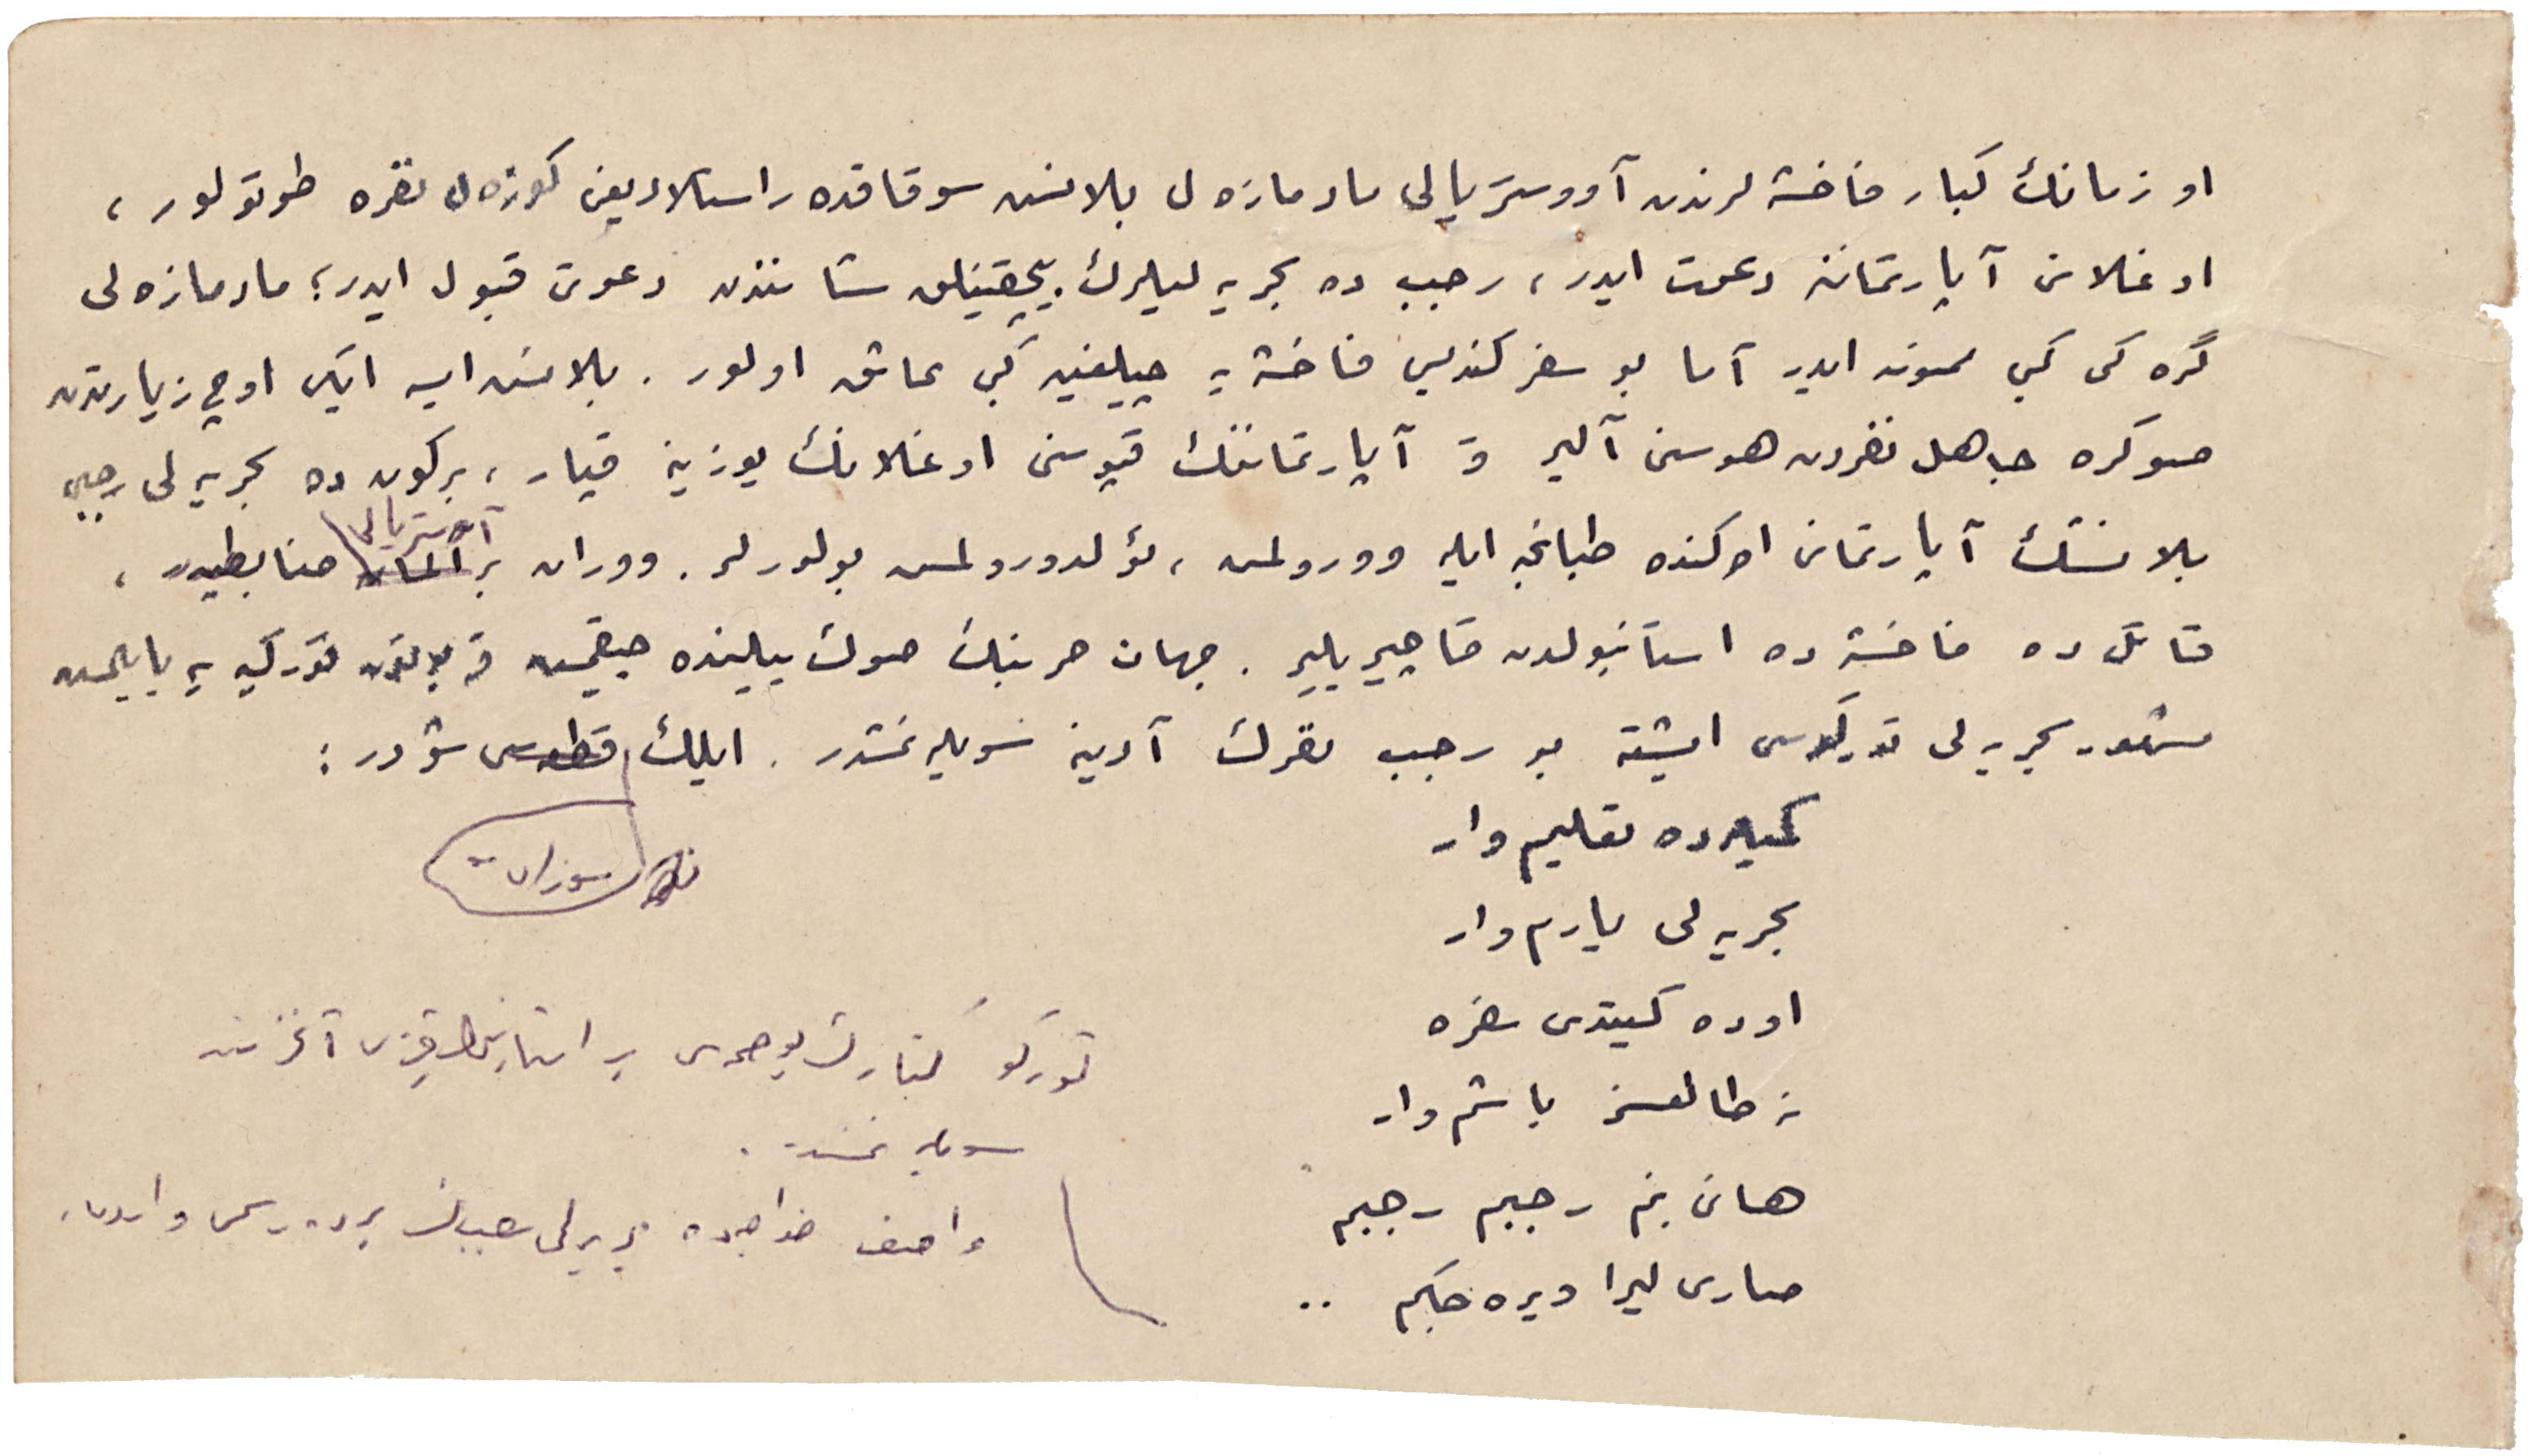 او زمانك كبار فاخشه لرندن آووستريالى مادمازه ل بلانش سوقاقده راستلاديغى كوزه ل نفره طوتولور ،
اوغلانى آپارتمانه دعوت ايدر ، رجب ده بحريه ليلرك بيچقينلق شاننده دعوتى قبول ايدر ؛ مادمازه لى
گره كى كبى ممنون ايدر آما بو سفر كنديسى فاخشه يه چيلغين كبى عاشق اولور . بلانش ايسه ايكى اوچ زيارتدن
صوكره جاهل نفردن هوسنى آلير و آپارتماننك قپوسنى اوغلانك يوزينه قپار ، بر كون ده بحريه لى رجبى
بلانشك آپارتمانى اوكنده طبانجه ايله وورولمش ، ئولدورولمش بولورلر . ووران بر آلمان آوستريالى ضابطيدر ،
قاتل ده فاخشه ده استانبولدن قاچيريلير . جهان حربنك صوك ييلنده چيقمش و بوتون توركيه يه ياييلمش
مشهور بحريه لى توركوسى ايشته بو رجب نفرك آدينه سويله نمشدر . ايلك قطعه سى شودر :
سوزلرى
كميلرده تعليم وار
بحريه لى يارم وار
اوده كيتدى سفره
نه طالعسز باشم وار
هانى بنم رجبم رجبم
صارى ليرا ويره جكم ..
توركو كنارلك بوصمه سى بر استانبول قيزى آغزندن
سويله نمشدر .
واصف خواجه ده بحريه لى رجبك بر ده رسمى واردى .